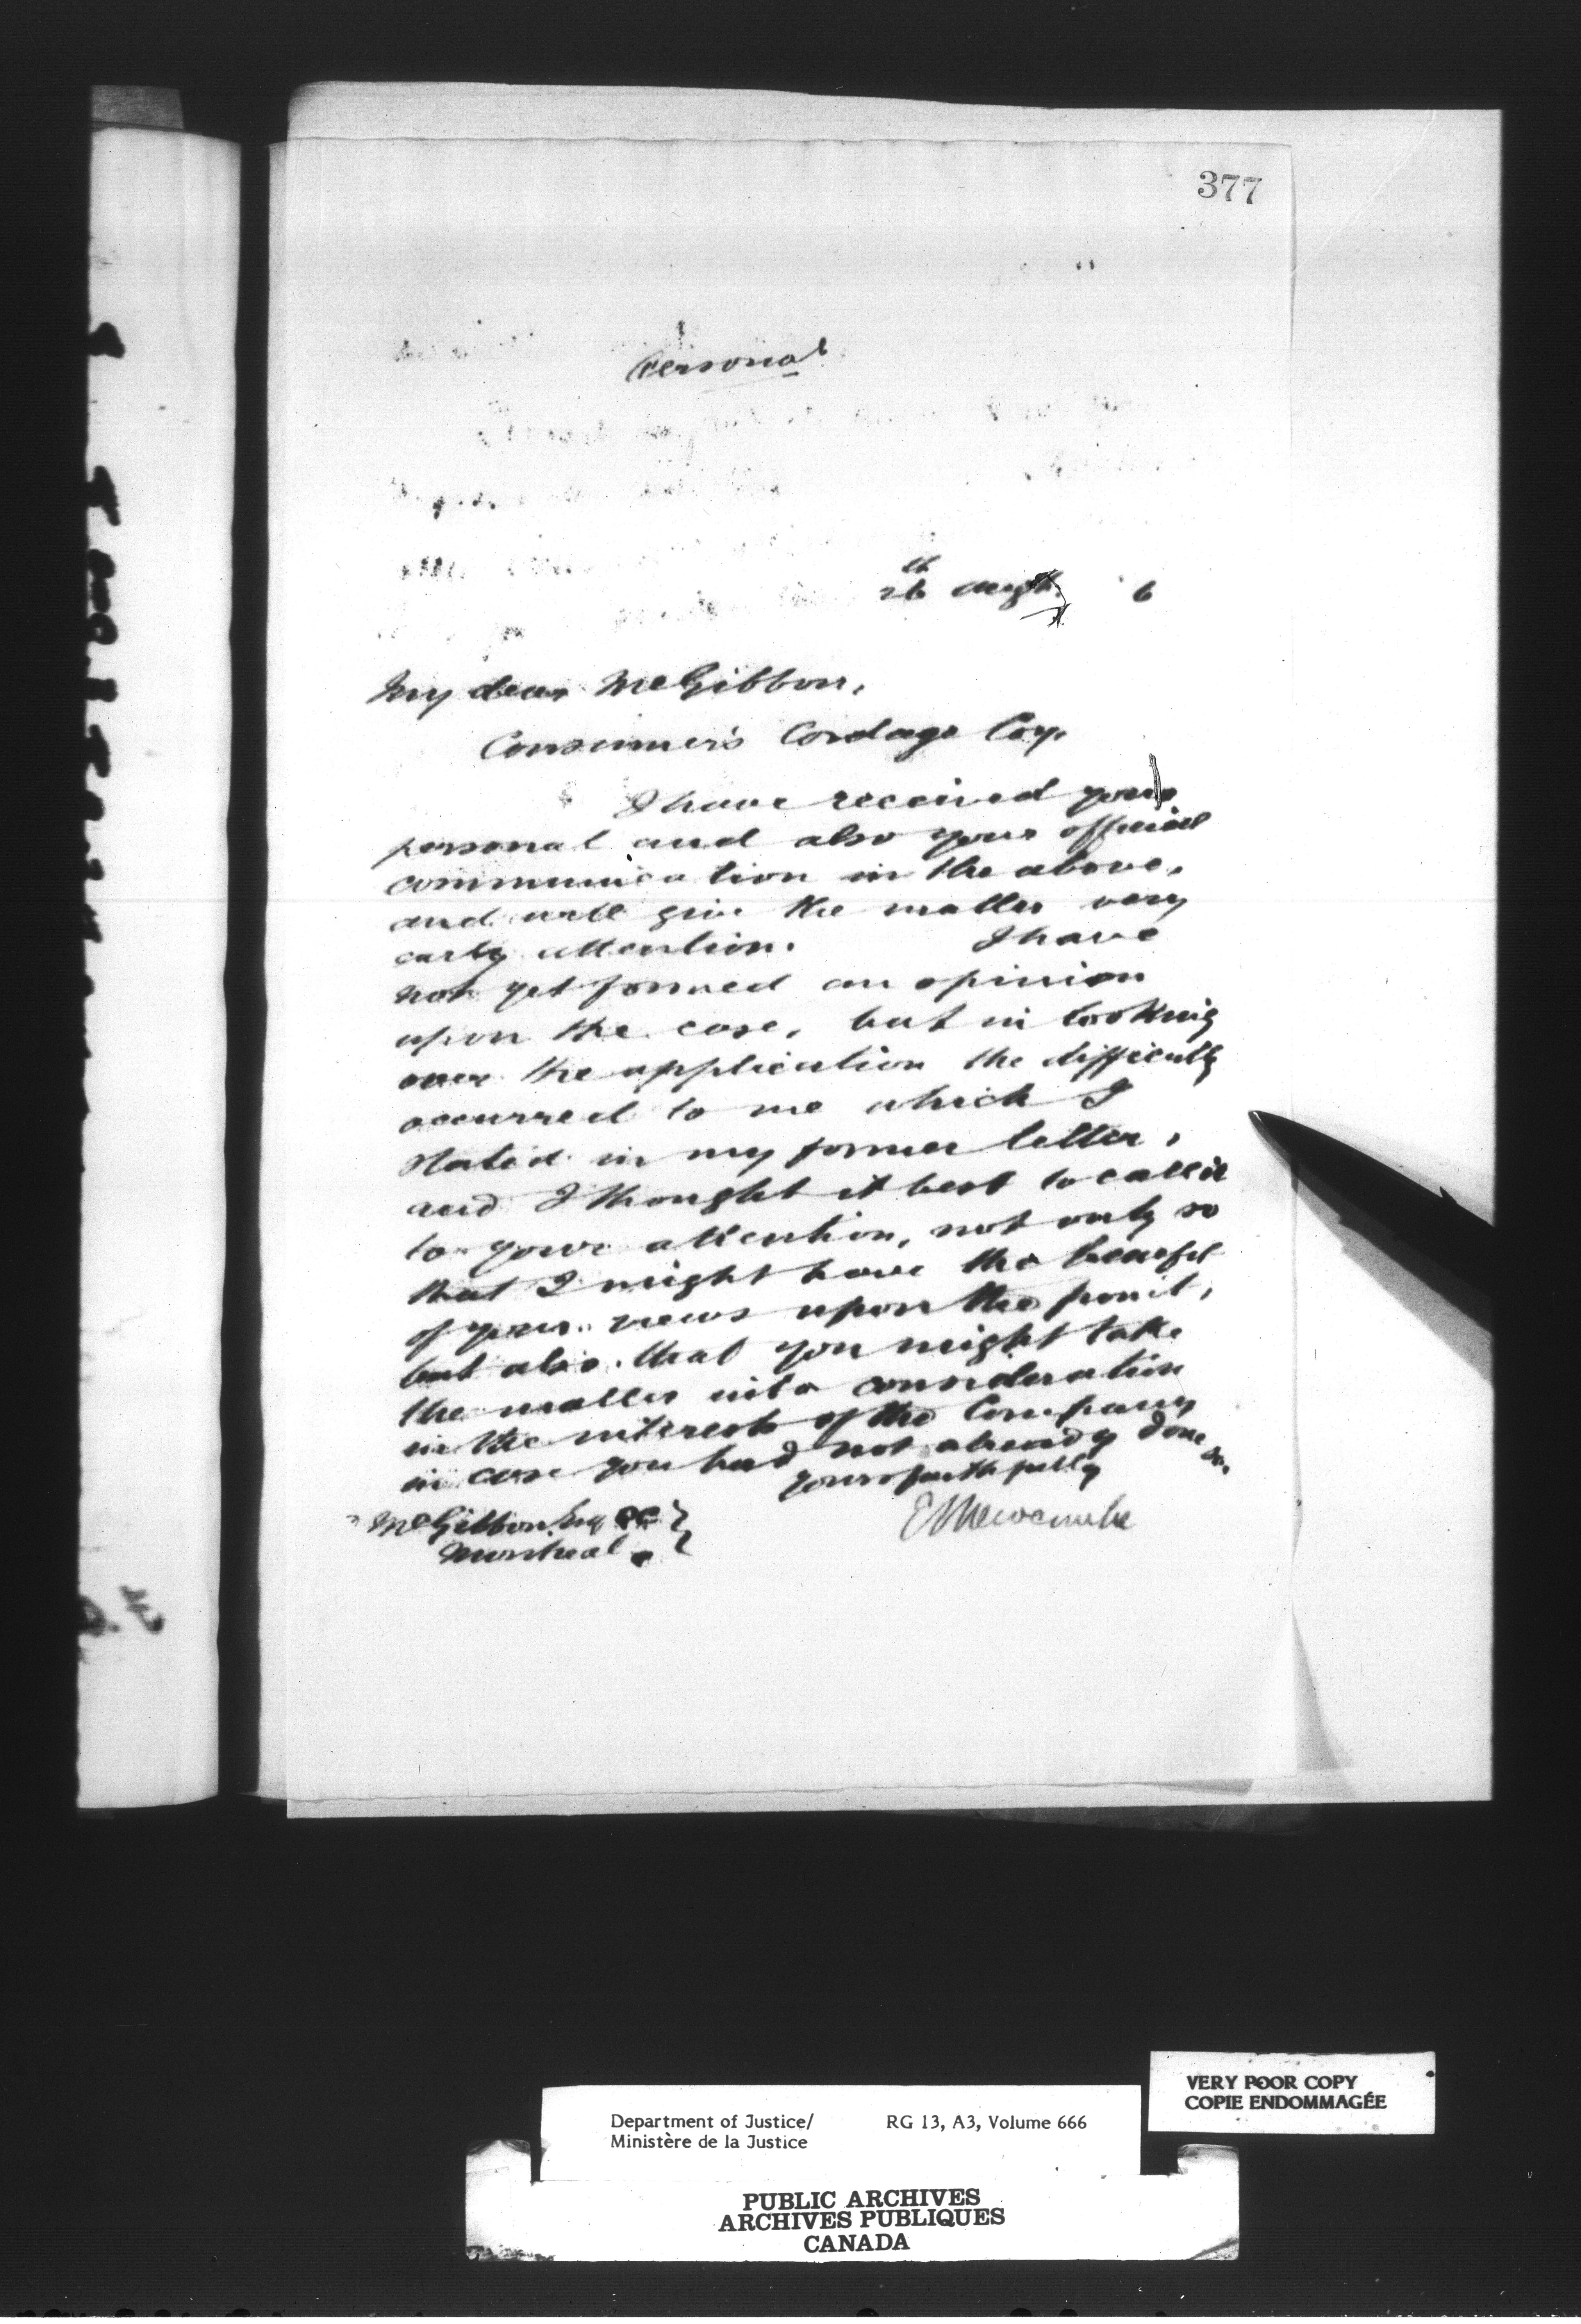 377
Personal
26th Augt. 6
My dear McGibbon,
Consumer's Cordage Coy.
I have received your
personal and also your official
communication in the above,
and will give the matter very
early attention. I have
not yet formed an opinion
upon the case, but in looking
over the application the difficulty
occurred to me which I
stated in my former letter,
and I thought it best to call it
to your attention, not only so
that I might have the benefit
of your views upon the point,
but also that you might take
the matter into consideration
in the interests of the Company
in case you had not already done so.
Yours faithfully
E L Newcombe
McGibbon Esq QC
Montreal.
VERY POOR COPY
COPIE ENDOMMAGÉE
Department of Justice/ RG 13, A3, Volume 666
Ministère de la Justice
PUBLIC ARCHIVES
ARCHIVES PUBLIQUES
CANADA